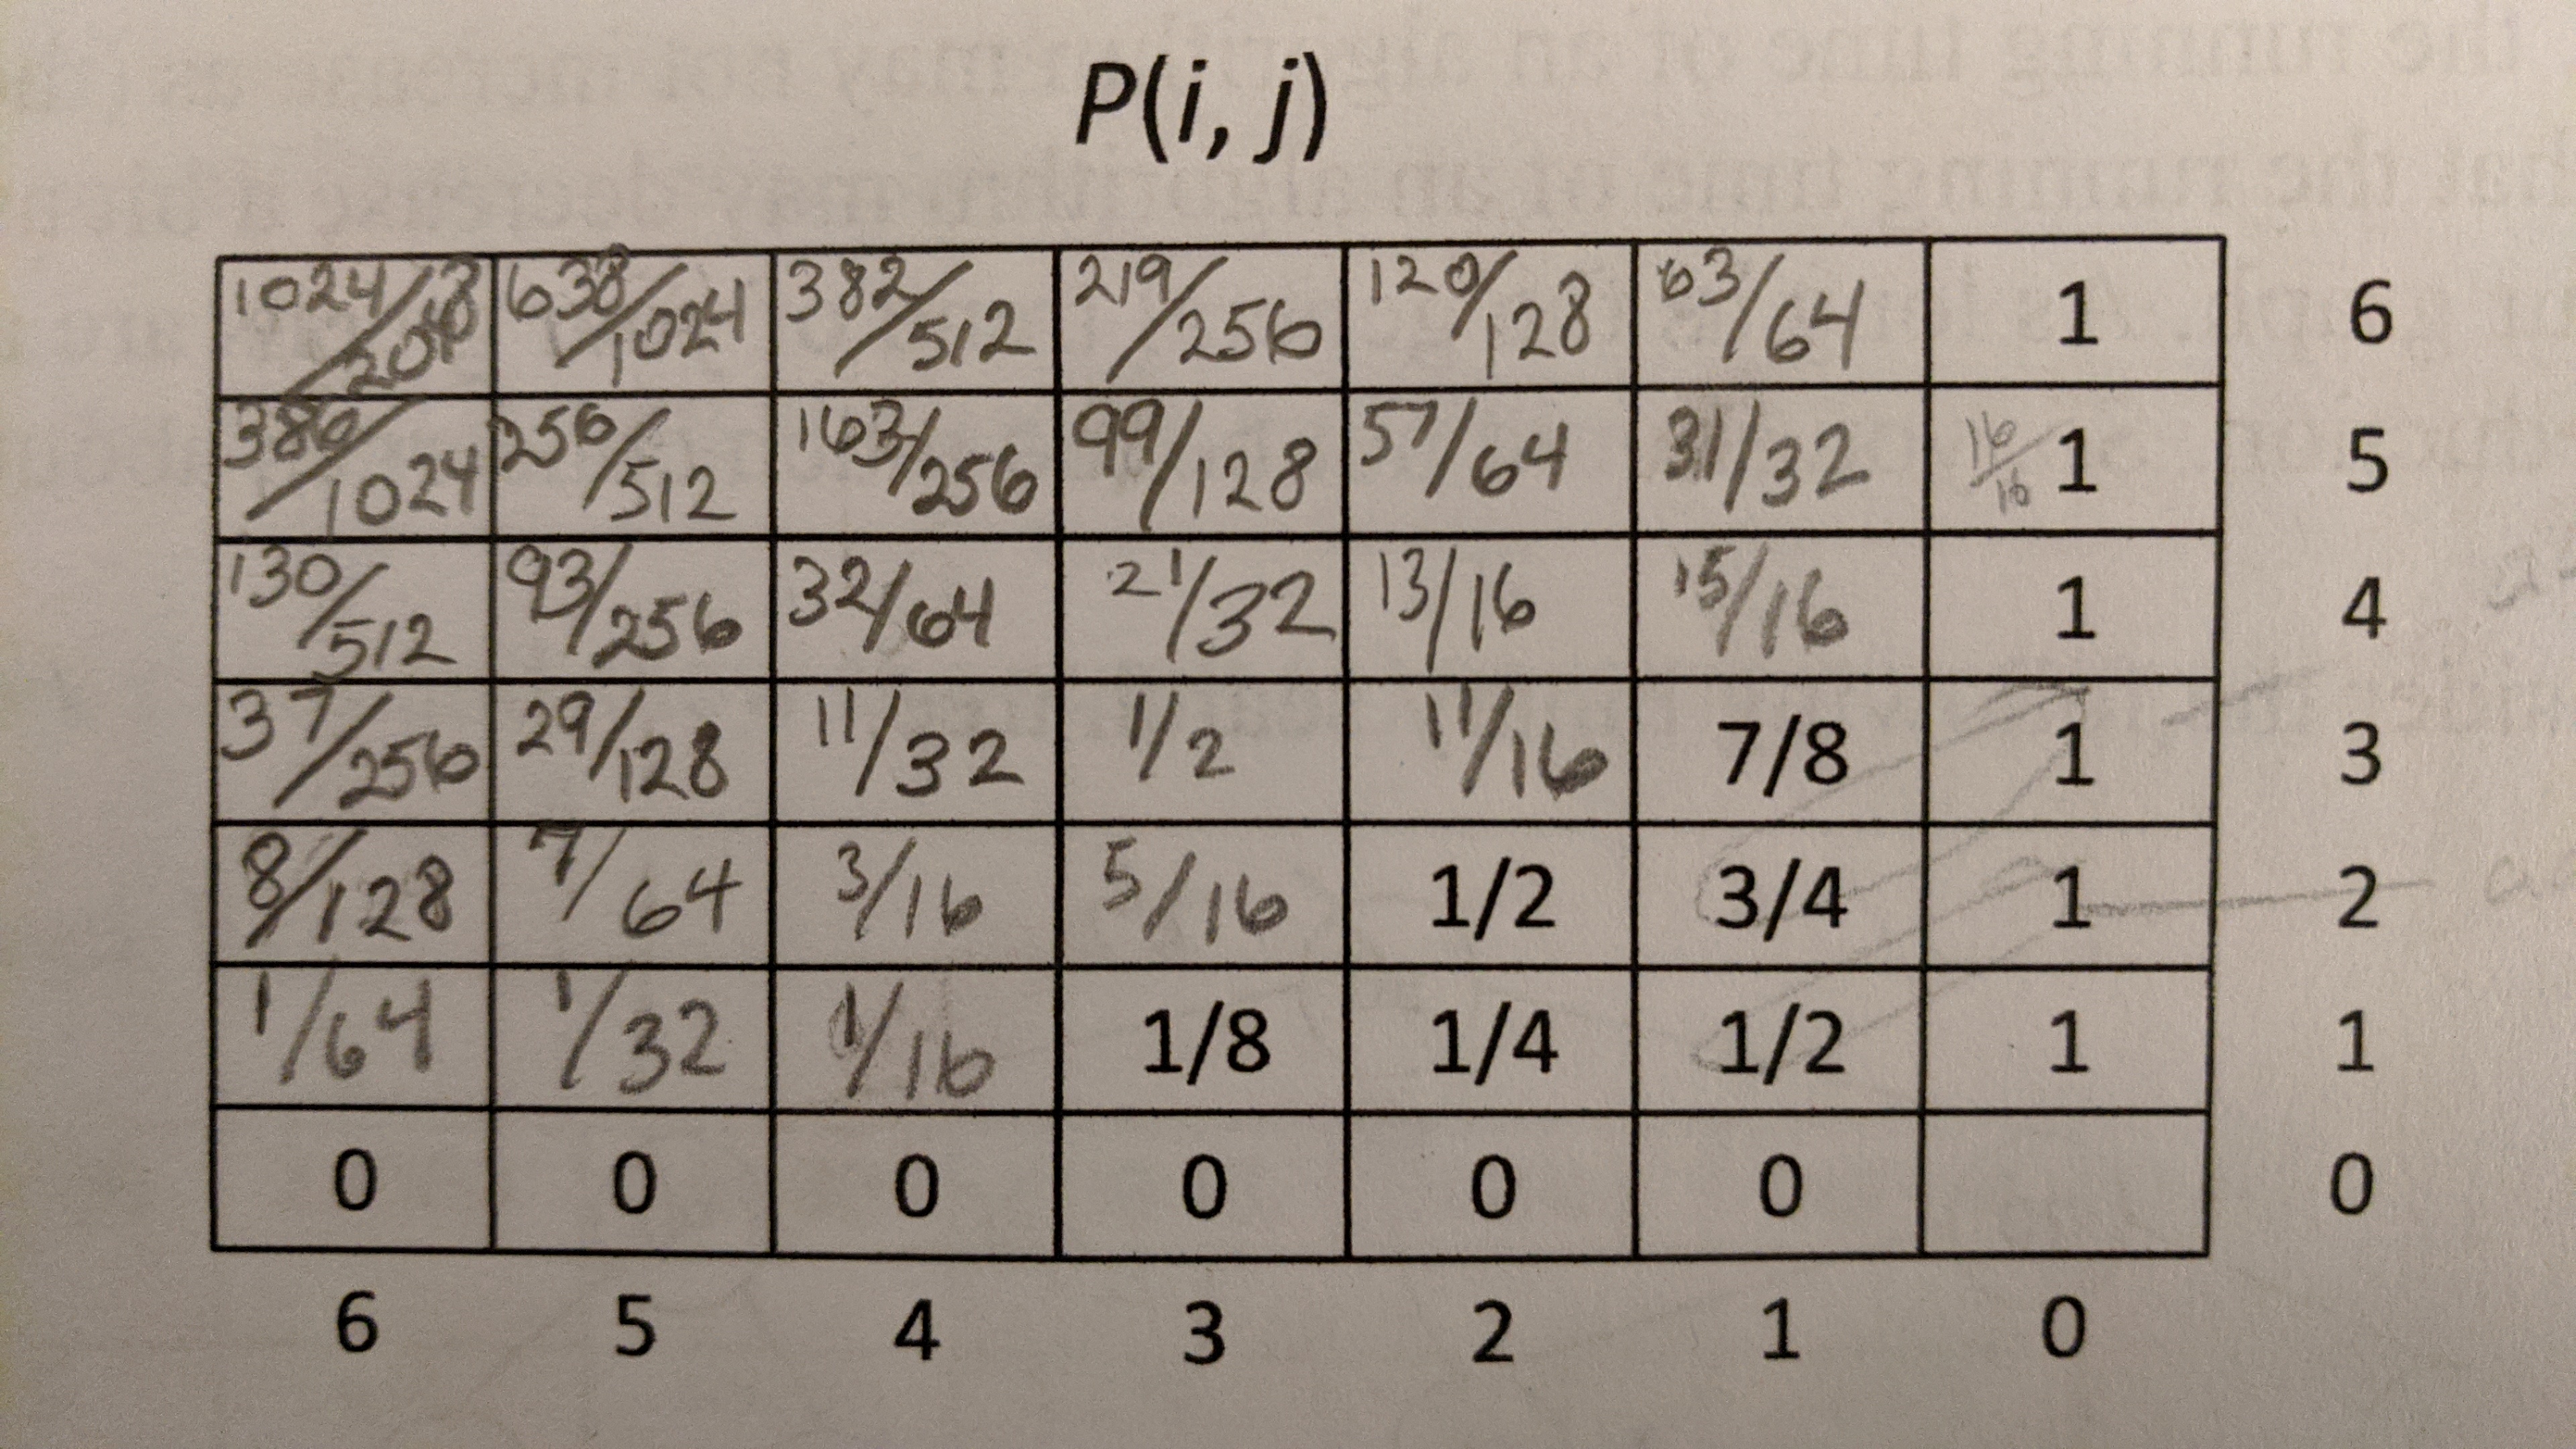 P(i, j)
1024/2048 638/1024 382/512 219/256 120/128 63/64 1 6
386/1024 256/512 163/256 99/128 57/64 31/32 16/16 1 5
130/512 93/256 32/64 21/32 13/16 15/16 1 4
37/256 29/128 11/32 1/2 11/16 7/8 1 3
8/128 7/64 3/16 5/16 1/2 3/4 1 2
1/64 1/32 1/16 1/8 1/4 1/2 1 1
0 0 0 0 0 0 0
6 5 4 3 2 1 0